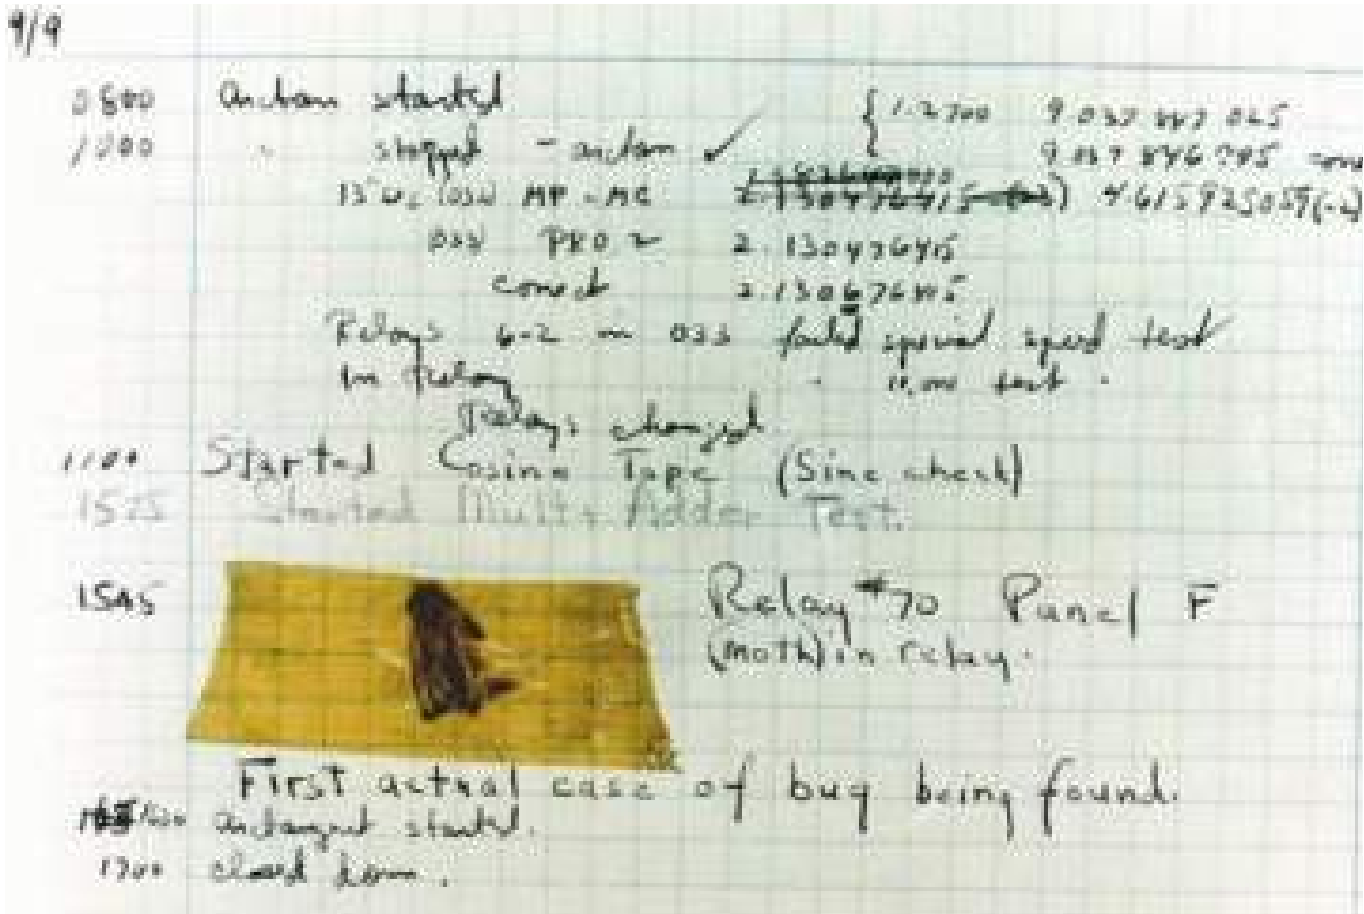 9/9
0800 antan started
1000 " stopped - antan ✓ { 1.2700 9.037 847 025
9.037 846 795
13" MP - MC 4.615925059(-2)
033 PRO 2 2.130476415
2.130676415
Relays 6-2 in 033 failed special speed test
in relay " test .
Relays changed
1100 Started Cosine Tape (Sine check)
1525 Started Mult + Adder Test.
1545 Relay #70 Panel F
(moth) in relay.
First actual case of bug being found.
1630 antangent started.
1700 closed down.